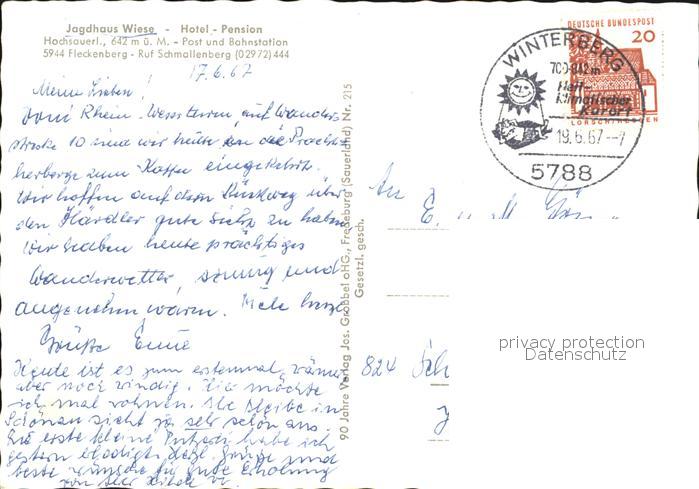 Jagdhaus Wiese - Hotel - Pension
Hochsauerl., 642 m ü. M. - Post und Bahnstation
5944 Fleckenberg - Ruf Schmallenberg (02972) 444
17.6.67
Meine Lieben!
Vom Rhein - Weserturm, auf Wander-
strecke 10 sind wir heute in die
herberge zum Kaffee eingekehrt.
Wir hoffen auf dem Rückweg über
den Härdler gute Sicht zu haben
Wir haben heute prächtiges
Wanderwetter, sonnig und
angenehm warm. Viele herzl.
Grüße
Heute ist es zum erstenmal wärmer
aber noch windig. Hier möchte
ich mal wohnen. Die Bleibe in
Schönau sieht ja sehr schön aus.
Die erste kleine habe ich
gestern erledigt. Herzl. Grüße und
beste Wünsche für gute Erholung
von
90 Jahre Verlag Jos. Grobbel oHG., Fredeburg (Sauerland) Nr. 215
Gesetzl. gesch.
DEUTSCHE BUNDESPOST
20
LORSCH/HESSEN
WINTERBERG
700-842 m
Heil-
klimatischer
Kurort
19.6.67.--7
5788
An
824 Sch
privacy protection
Datenschutz